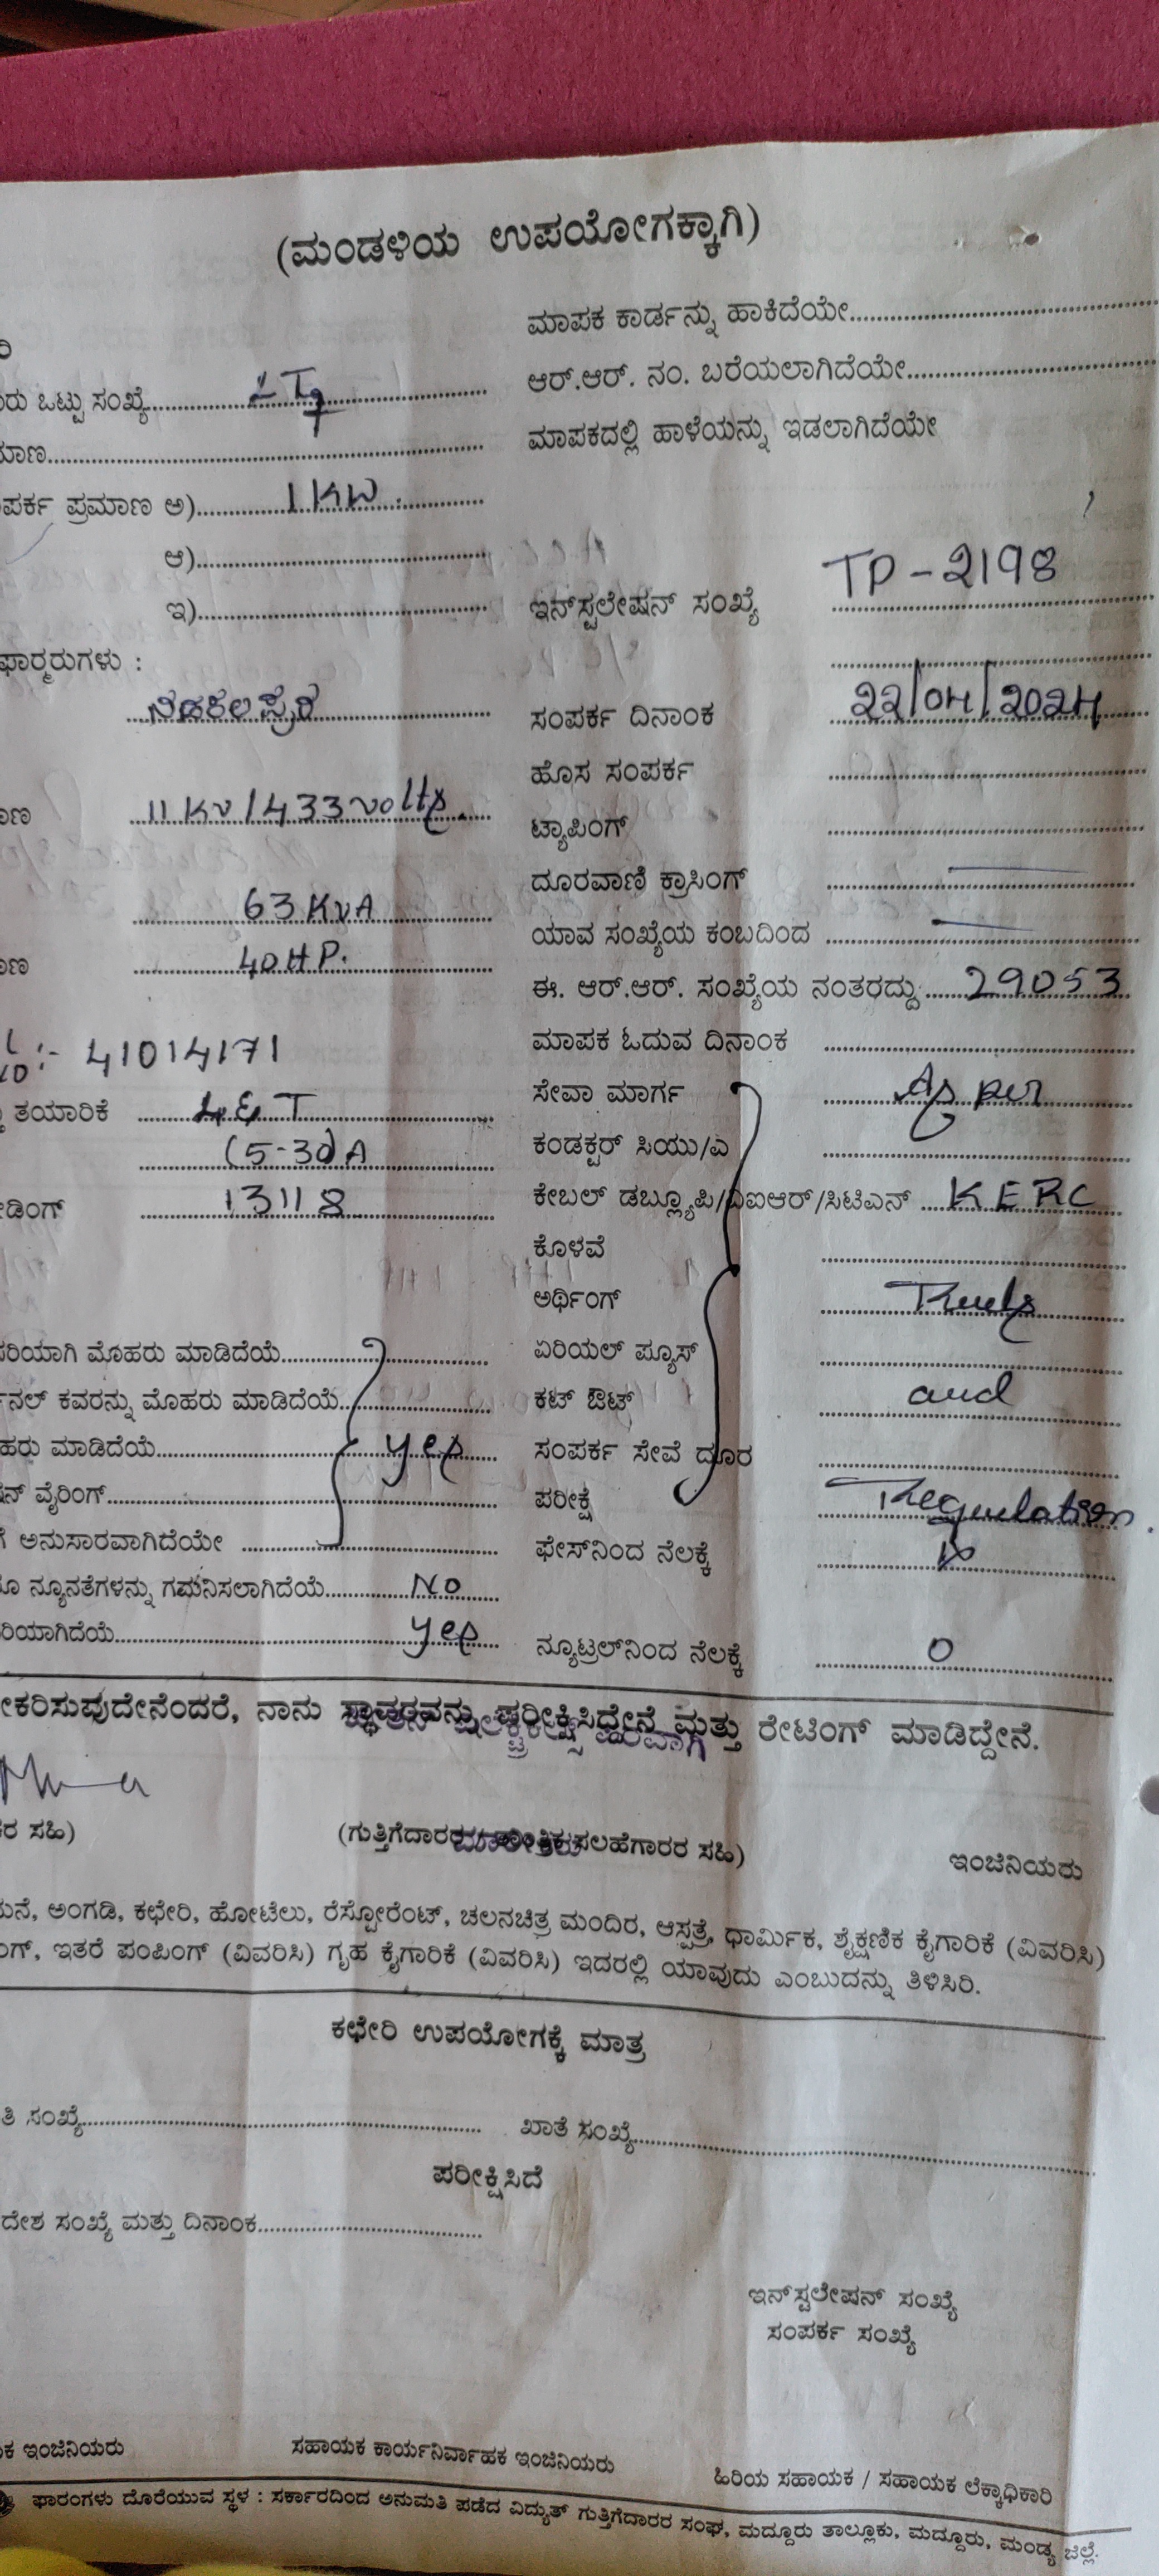 (ಮಂಡಳಿಯ ಉಪಯೋಗಕ್ಕಾಗಿ)
ಮಾಪಕ ಕಾರ್ಡನ್ನು ಹಾಕಿದೆಯೇ
ರು ಒಟ್ಟು ಸಂಖ್ಯೆ
ಆರ್.ಆರ್. ನಂ. ಬರೆಯಲಾಗಿದೆಯೇ
ಮಾಣ
ಮಾಪಕದಲ್ಲಿ ಹಾಳೆಯನ್ನು ಇಡಲಾಗಿದೆಯೇ
ಪರ್ಕ ಪ್ರಮಾಣ ಅ) 1 KW
ಆ)
ಇ)
ಇನ್‌ಸ್ಟಲೇಷನ್ ಸಂಖ್ಯೆ TP-2198
ಫಾರ್ಮರುಗಳು :
ಸಂಪರ್ಕ ದಿನಾಂಕ 22/04/2024
ಹೊಸ ಸಂಪರ್ಕ
ಾಣ 11 KV / 433 volts
ಟ್ಯಾಪಿಂಗ್
ದೂರವಾಣಿ ಕ್ರಾಸಿಂಗ್
63 KVA
ಯಾವ ಸಂಖ್ಯೆಯ ಕಂಬದಿಂದ
ಾಣ 40 HP.
ಈ. ಆರ್.ಆರ್. ಸಂಖ್ಯೆಯ ನಂತರದ್ದು 29053
ಮಾಪಕ ಓದುವ ದಿನಾಂಕ
:- 41014171
ಸೇವಾ ಮಾರ್ಗ As per
ತಯಾರಿಕೆ L&T
ಕಂಡಕ್ಟರ್ ಸಿಯು/ಎ
(5-30)A
ಕೇಬಲ್ ಡಬ್ಲ್ಯೂಪಿ/ಎಐಆರ್/ಸಿಟಿಎನ್ KERC
ಡಿಂಗ್ 13118
ಕೊಳವೆ
ಅರ್ಥಿಂಗ್
ಸರಿಯಾಗಿ ಮೊಹರು ಮಾಡಿದೆಯೆ
ಏರಿಯಲ್ ಪ್ಯೂಸ್
ನಲ್ ಕವರನ್ನು ಮೊಹರು ಮಾಡಿದೆಯೆ
ಕಟ್ ಔಟ್ and
ಹರು ಮಾಡಿದೆಯೆ yes
ಸಂಪರ್ಕ ಸೇವೆ ದೂರ
ನ್ ವೈರಿಂಗ್
ಪರೀಕ್ಷೆ Regulation.
ಅನುಸಾರವಾಗಿದೆಯೇ
ಫೇಸ್‌ನಿಂದ ನೆಲಕ್ಕೆ
ನ್ಯೂನತೆಗಳನ್ನು ಗಮನಿಸಲಾಗಿದೆಯೆ No
ರಿಯಾಗಿದೆಯೆ yes
ನ್ಯೂಟ್ರಲ್‌ನಿಂದ ನೆಲಕ್ಕೆ 0
ೀಕರಿಸುವುದೇನೆಂದರೆ, ನಾನು ಸ್ಥಾವರವನ್ನು ಪರೀಕ್ಷಿಸಿದ್ದೇನೆ ಮತ್ತು ರೇಟಿಂಗ್ ಮಾಡಿದ್ದೇನೆ.
ರ ಸಹಿ)
(ಗುತ್ತಿಗೆದಾರರ ಸಲಹೆಗಾರರ ಸಹಿ)
ಇಂಜಿನಿಯರು
ಮನೆ, ಅಂಗಡಿ, ಕಛೇರಿ, ಹೋಟೆಲು, ರೆಸ್ಟೋರೆಂಟ್, ಚಲನಚಿತ್ರ ಮಂದಿರ, ಆಸ್ಪತ್ರೆ, ಧಾರ್ಮಿಕ, ಶೈಕ್ಷಣಿಕ ಕೈಗಾರಿಕೆ (ವಿವರಿಸಿ)
ಂಗ್, ಇತರೆ ಪಂಪಿಂಗ್ (ವಿವರಿಸಿ) ಗೃಹ ಕೈಗಾರಿಕೆ (ವಿವರಿಸಿ) ಇದರಲ್ಲಿ ಯಾವುದು ಎಂಬುದನ್ನು ತಿಳಿಸಿರಿ.
ಕಛೇರಿ ಉಪಯೋಗಕ್ಕೆ ಮಾತ್ರ
ತಿ ಸಂಖ್ಯೆ
ಖಾತೆ ಸಂಖ್ಯೆ
ಪರೀಕ್ಷಿಸಿದೆ
ದೇಶ ಸಂಖ್ಯೆ ಮತ್ತು ದಿನಾಂಕ
ಇನ್‌ಸ್ಟಲೇಷನ್ ಸಂಖ್ಯೆ
ಸಂಪರ್ಕ ಸಂಖ್ಯೆ
ಕ ಇಂಜಿನಿಯರು
ಸಹಾಯಕ ಕಾರ್ಯನಿರ್ವಾಹಕ ಇಂಜಿನಿಯರು
ಹಿರಿಯ ಸಹಾಯಕ / ಸಹಾಯಕ ಲೆಕ್ಕಾಧಿಕಾರಿ
ಫಾರಂಗಳು ದೊರೆಯುವ ಸ್ಥಳ : ಸರ್ಕಾರದಿಂದ ಅನುಮತಿ ಪಡೆದ ವಿದ್ಯುತ್ ಗುತ್ತಿಗೆದಾರರ ಸಂಘ, ಮದ್ದೂರು ತಾಲ್ಲೂಕು, ಮದ್ದೂರು, ಮಂಡ್ಯ ಜಿಲ್ಲೆ.